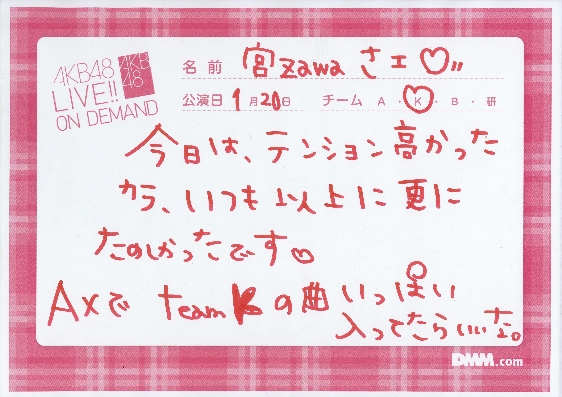 AKB48
LIVE!!
ON DEMAND
AKB
48
名前 宮zawaさエ♡"
公演日 1月20日 チーム A・K・B・研
今日は、テンション高かった
から、いつも以上に更に
たのしかったです♡
AXで teamKの曲いっぱい
入ってたらいいな。
DMM.com